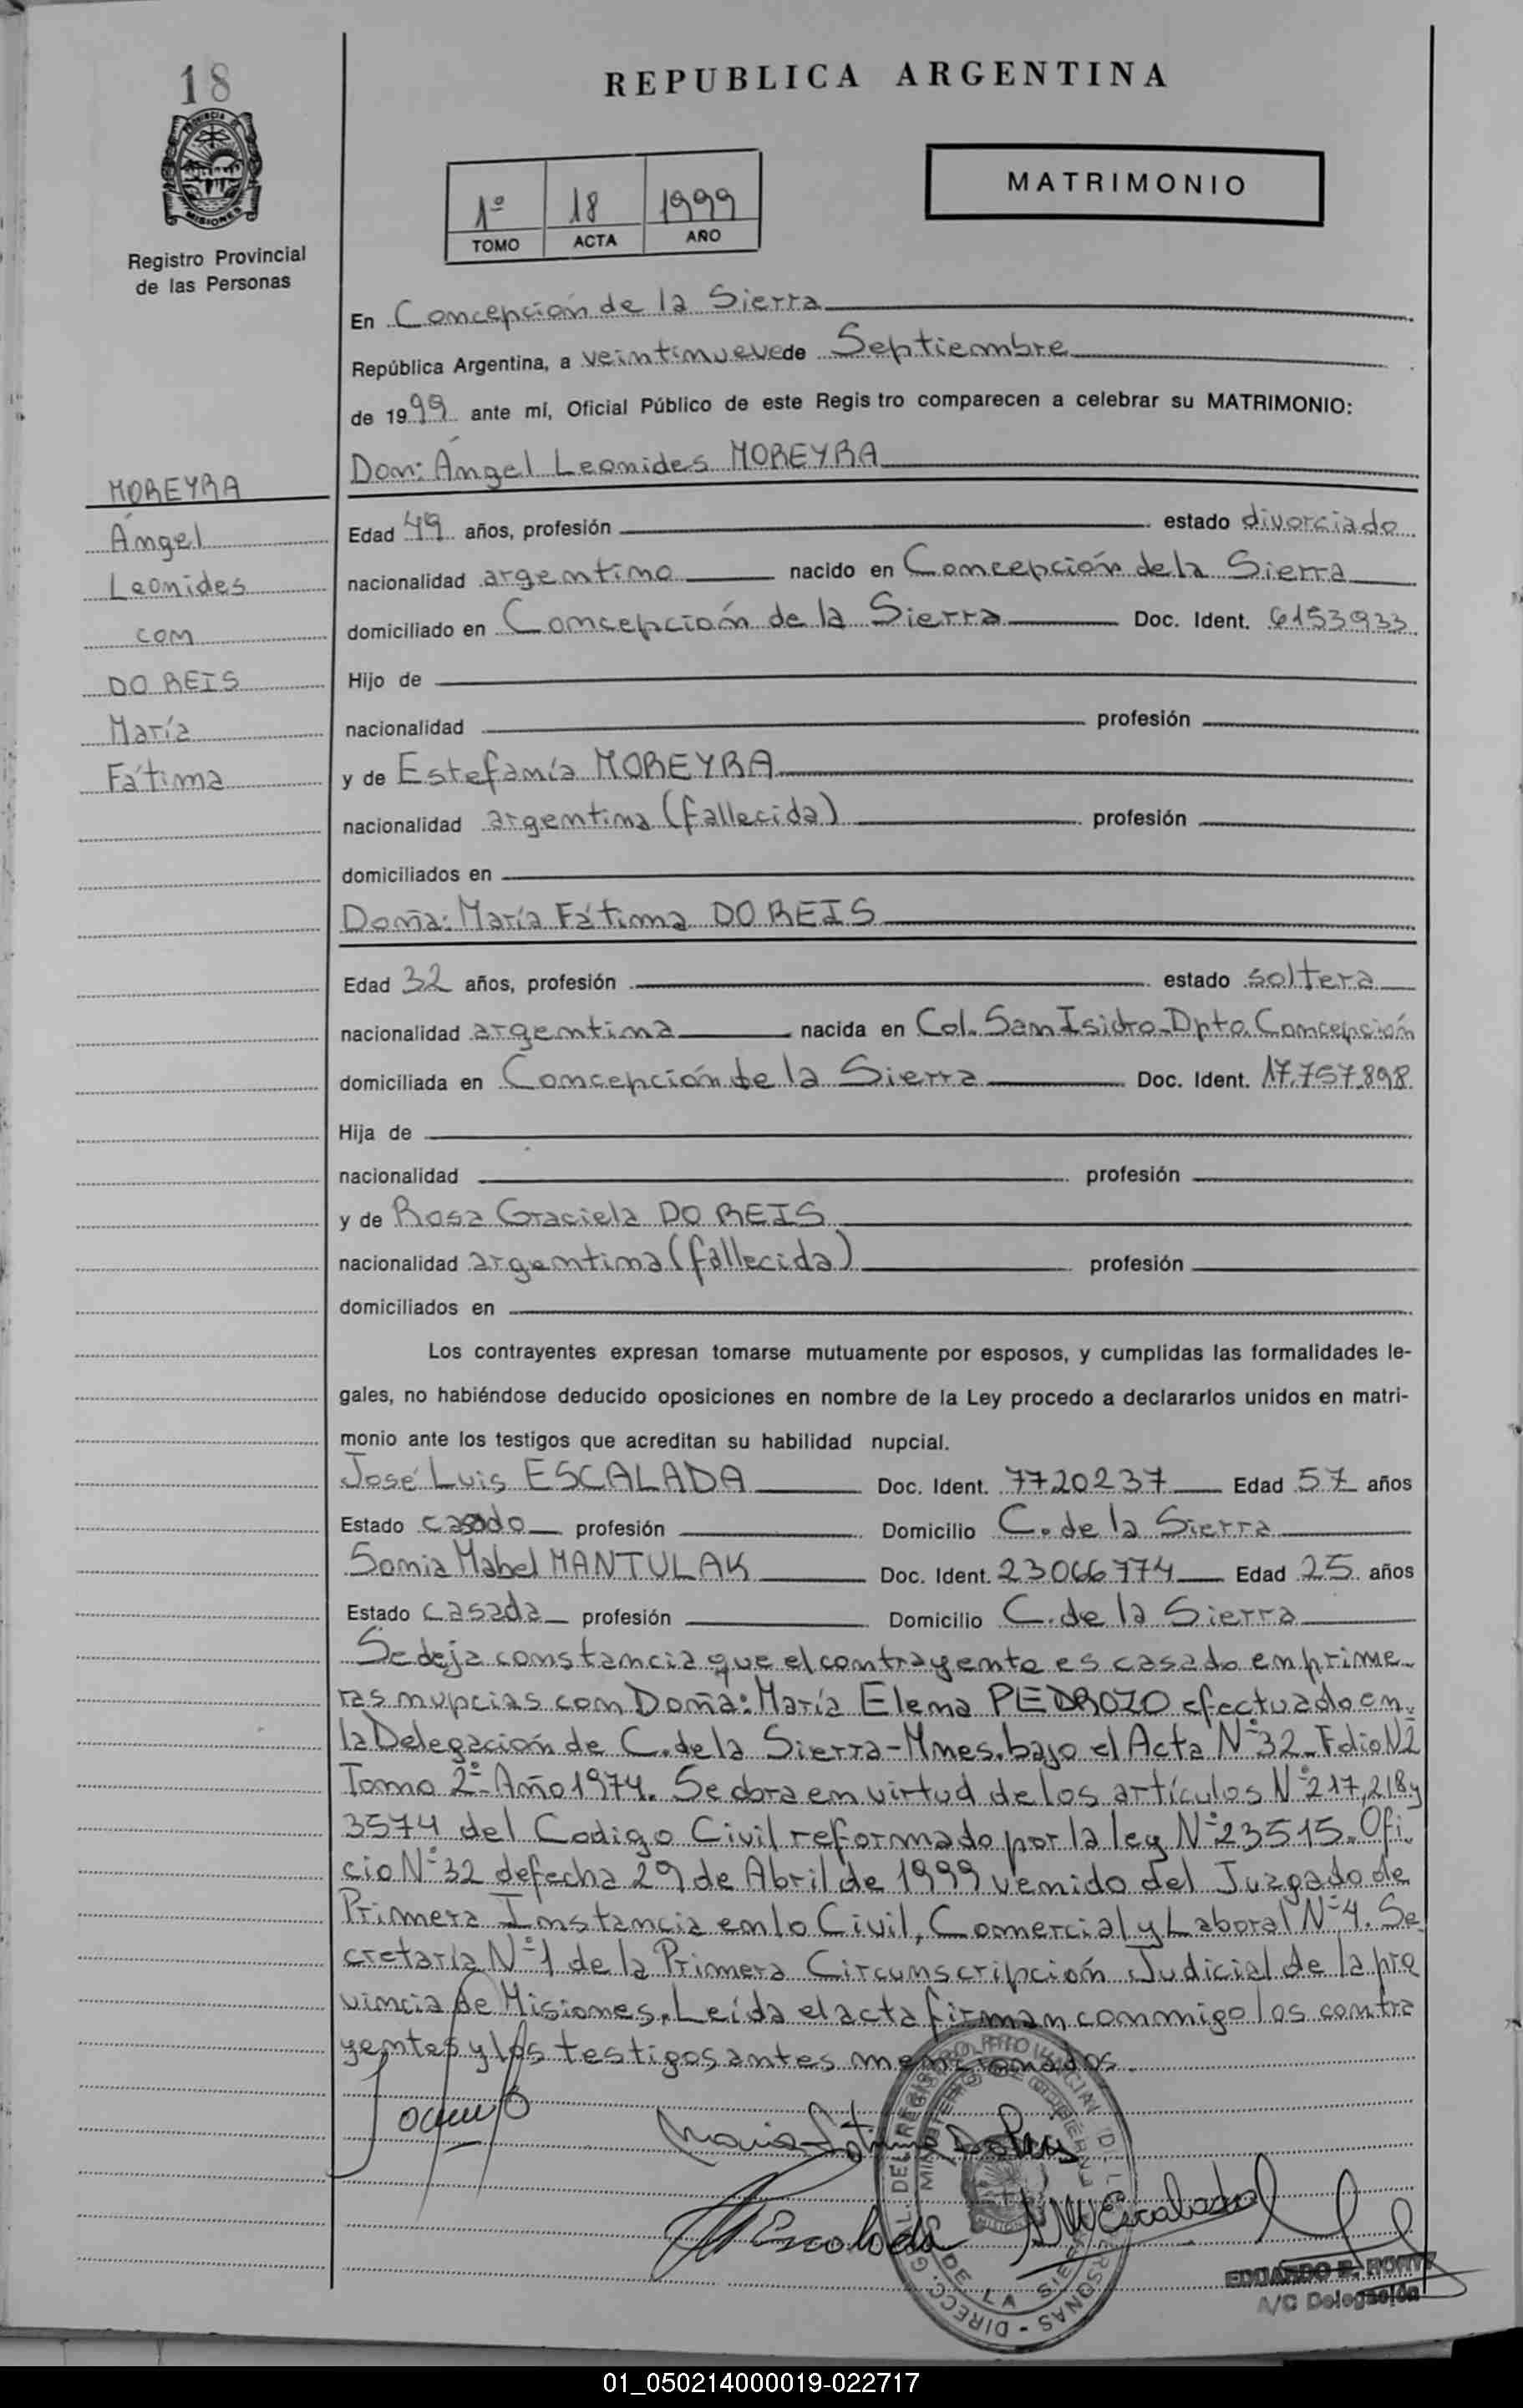 18
REPUBLICA ARGENTINA
PROVINCIA
MISIONES
Registro Provincial
de las Personas
1º 18 1999
TOMO ACTA AÑO
MATRIMONIO
En Concepción de la Sierra
República Argentina, a veintinueve de Septiembre
de 1999 ante mí, Oficial Público de este Regis tro comparecen a celebrar su MATRIMONIO:
Don: Ángel Leonides MOREYRA
MOREYRA
Ángel
Leonides
con
DO REIS
María
Fátima
Edad 49 años, profesión estado divorciado
nacionalidad argentino nacido en Concepción de la Sierra
domiciliado en Concepción de la Sierra Doc. Ident. 6153933
Hijo de
nacionalidad profesión
y de Estefanía MOREYRA
nacionalidad argentina (fallecida) profesión
domiciliados en
Doña: María Fátima DO REIS
Edad 32 años, profesión estado soltera
nacionalidad argentina nacida en Col. San Isidro-Dpto. Concepción
domiciliada en Concepción de la Sierra Doc. Ident. 17.757.898
Hija de
nacionalidad profesión
y de Rosa Graciela DO REIS
nacionalidad argentina (fallecida) profesión
domiciliados en
Los contrayentes expresan tomarse mutuamente por esposos, y cumplidas las formalidades le-
gales, no habiéndose deducido oposiciones en nombre de la Ley procedo a declararlos unidos en matri-
monio ante los testigos que acreditan su habilidad nupcial.
José Luis ESCALADA Doc. Ident. 7720237 Edad 57 años
Estado casado profesión Domicilio C. de la Sierra
Sonia Mabel MANTULAK Doc. Ident. 23066774 Edad 25 años
Estado casada profesión Domicilio C. de la Sierra
Se deja constancia que el contrayente es casado en prime-
ras nupcias con Doña: María Elena PEDROZO efectuado en
la Delegación de C. de la Sierra-Mnes. bajo el Acta Nº 32-Folio
Tomo 2º-Año 1974. Se obra en virtud de los artículos Nº 217, 218 y
3574 del Codigo Civil reformado por la ley Nº 23515. Ofi-
cio Nº 32 de fecha 29 de Abril de 1999 venido del Juzgado de
Primera Instancia en lo Civil, Comercial y Laboral Nº 4. Se
cretaría Nº 1 de la Primera Circunscripción Judicial de la pro
vincia de Misiones. Leída el acta firman conmigo los contra
yentes y los testigos antes mencionados.
Maria Fatima DoReis
Escalada
Escalada
DIRECC. GRAL. DEL REGISTRO PROVINCIAL DE LAS PERSONAS
MINISTERIO DE GOBIERNO
DE LA SIERRA
A/C Delegación
01_050214000019-022717